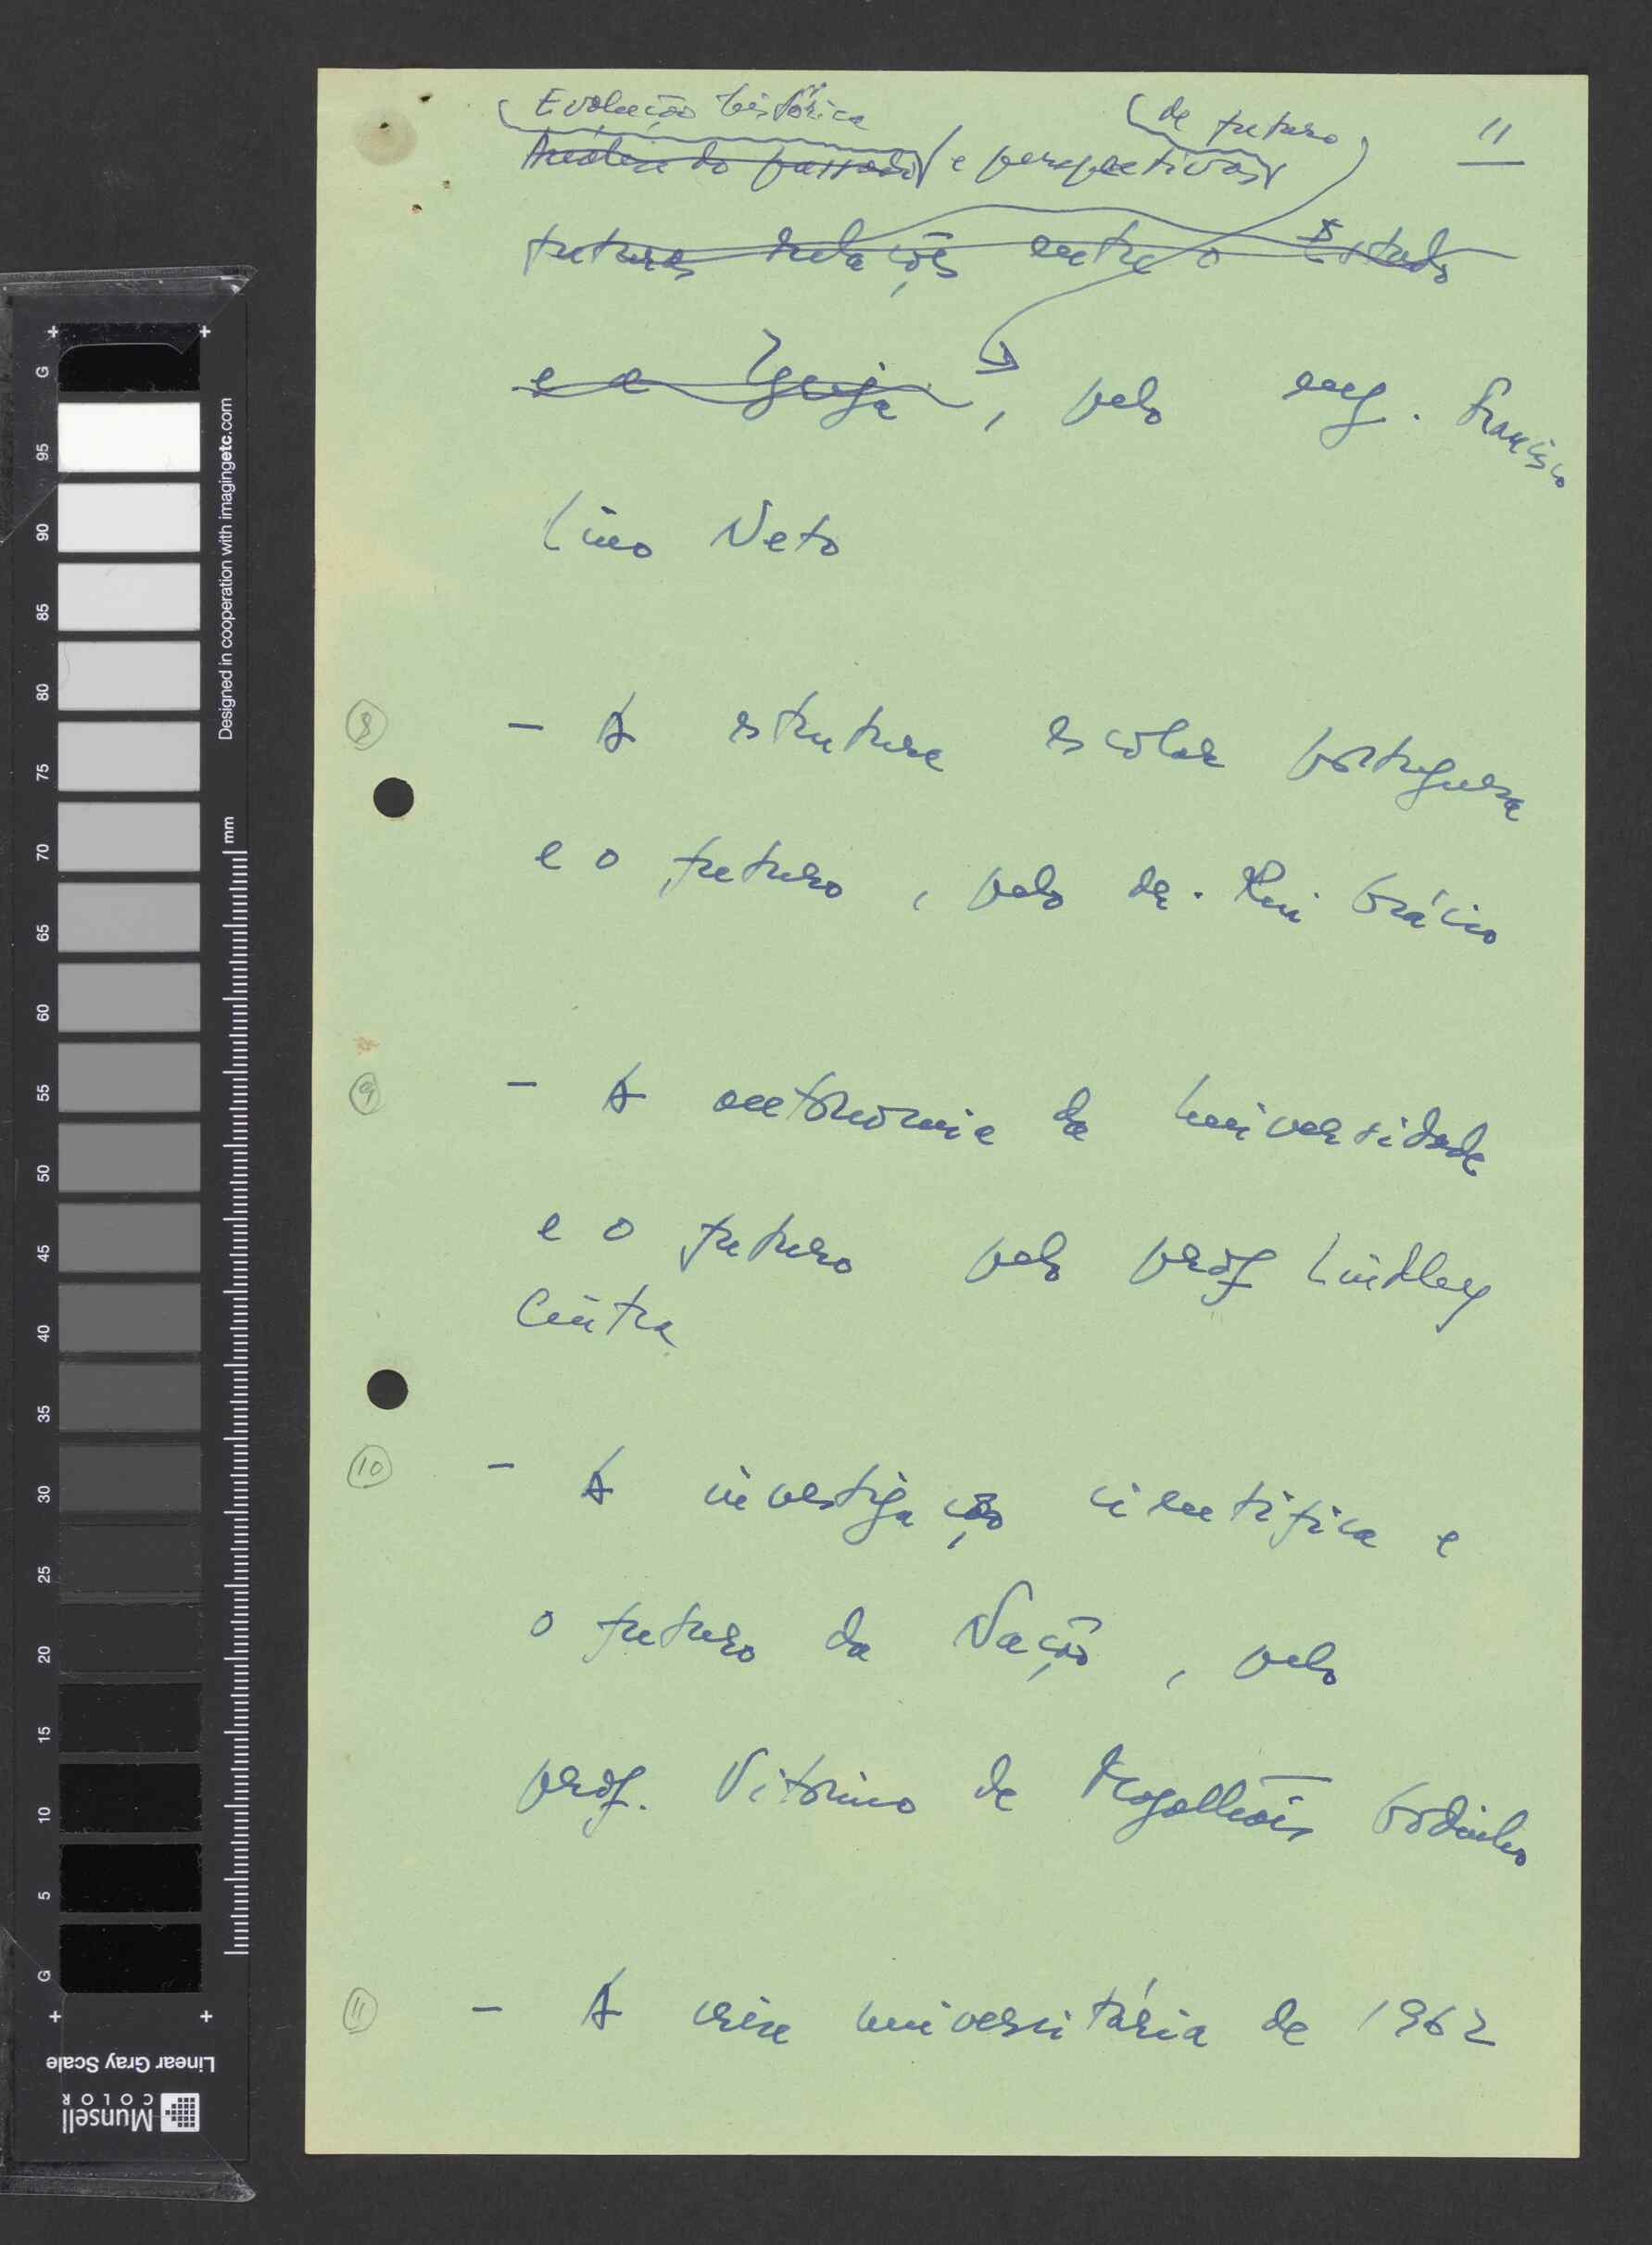 Evolução histórica
de futuro
11
Análise do passado e perspectivas
futuras relações entre o Estado
e a Igreja, pelo eng. Francisco
Lino Neto
8 - A estrutura escolar portuguesa
e o futuro, pelo dr. Rui Grácio
9 - A autonomia da Universidade
e o futuro pelo prof Lindley
Cintra
10 - A investigação cientifica e
o futuro da Nação, pelo
prof. Vitorino de Magalhães Godinho
11 - A crise universitária de 1962
Designed in cooperation with imagingetc.com
mm
G 95 90 85 80 75 70 65 60 55 50 45 40 35 30 25 20 15 10 5 G
Linear Gray Scale
Munsell
COLOR